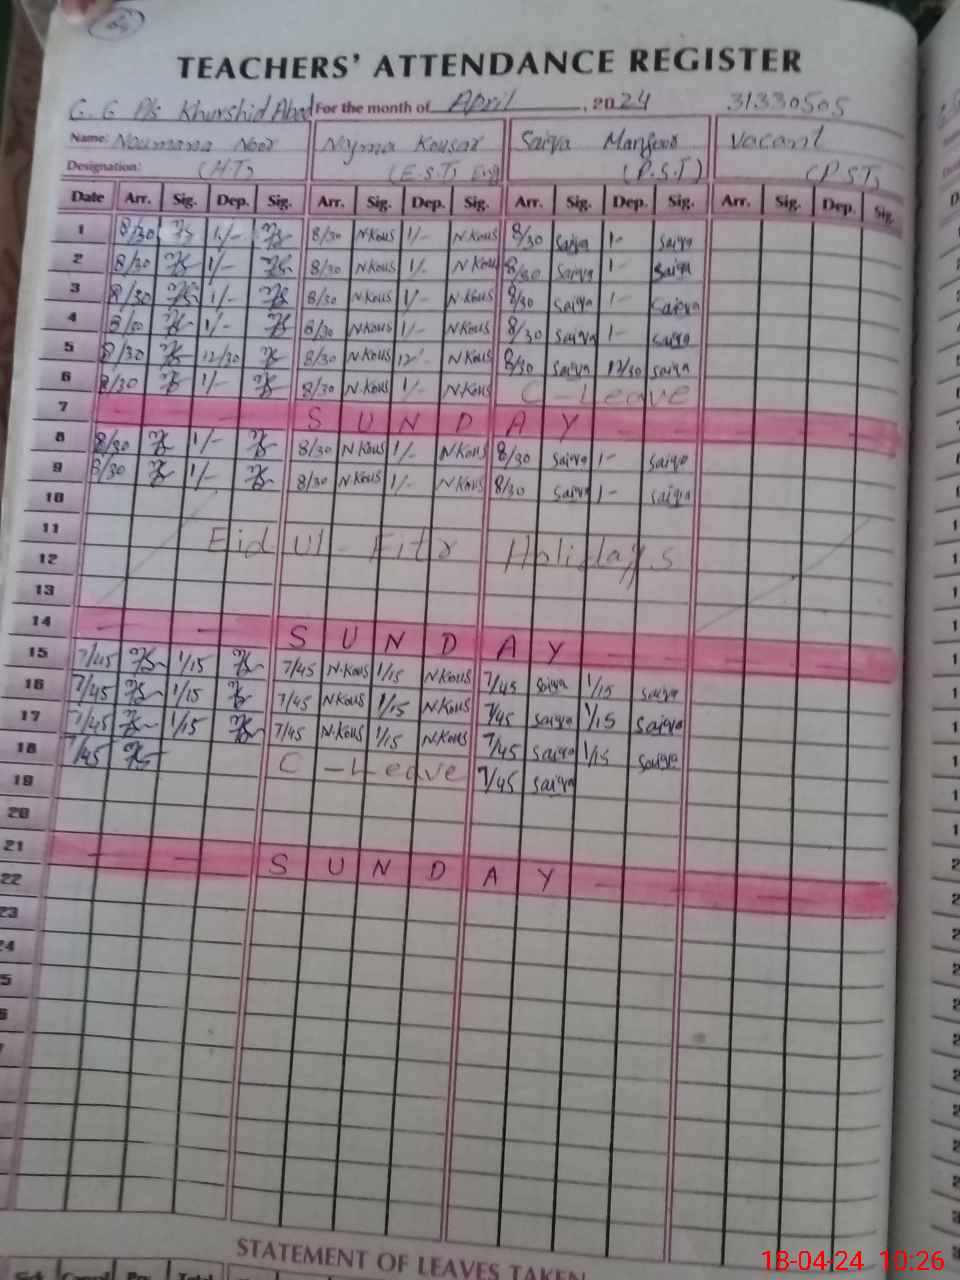 TEACHERS' ATTENDANCE REGISTER
G. G P/s Khurshid Abad For the month of April, 2024 31330505
Name: Noumana Noor Najma Kousar Saira Manzoor Vacant
Designation: (H.T) (E.S.T) (P.S.T) (P.S.T)
Date Arr. Sig. Dep. Sig. Arr. Sig. Dep. Sig. Arr. Sig. Dep. Sig. Arr. Sig. Dep. Sig.
1 8/30 1/- 8/30 N.Kous 1/- N.Kous 8/30 Saira 1- Saira
2 8/30 1/- 8/30 N.Kous 1/- N.Kous 8/30 Saira 1- Saira
3 8/30 1/- 8/30 N.Kous 1/- N.Kous 8/30 Saira 1- Saira
4 1/- 8/30 N.Kous 1/- N.Kous 8/30 Saira 1- Saira
5 8/30 12/30 8/30 N.Kous 12/- N.Kous 8/30 Saira 12/30 Saira
6 8/30 1/- 8/30 N.Kous 1/- N.Kous C-Leave
7 - - - S U N D A Y - - -
8 8/30 1/- 8/30 N.Kous 1/- N.Kous 8/30 Saira 1- Saira
9 8/30 1/- 8/30 N.Kous 1/- N.Kous 8/30 Saira 1- Saira
10
11
Eid Ul-Fitr Holidays
12
13
14 - - - S U N D A Y - - -
15 7/45 1/15 7/45 N.Kous 1/15 N.Kous 7/45 Saira 1/15 Saira
16 7/45 1/15 7/45 N.Kous 1/15 N.Kous 7/45 Saira 1/15 Saira
17 7/45 1/15 7/45 N.Kous 1/15 N.Kous 7/45 Saira 1/15 Saira
18 7/45 C-Leave 7/45 Saira
19
20
21 - - - S U N D A Y - - -
22
23
24
5
6
7
STATEMENT OF LEAVES TAKEN
18-04-24 10:26